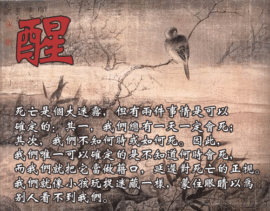 醒
死亡是個大迷霧，但有兩件事情是可以
確定的：其一，我們總有一天一定會死；
其次，我們不知何時或如何死。因此，
我們唯一可以確定的是不知道何時會死，
而我們就把它當做藉口，延遲對死亡的正視。
我們就像小孩玩捉迷藏一樣，蒙住眼睛以為
別人看不到我們。